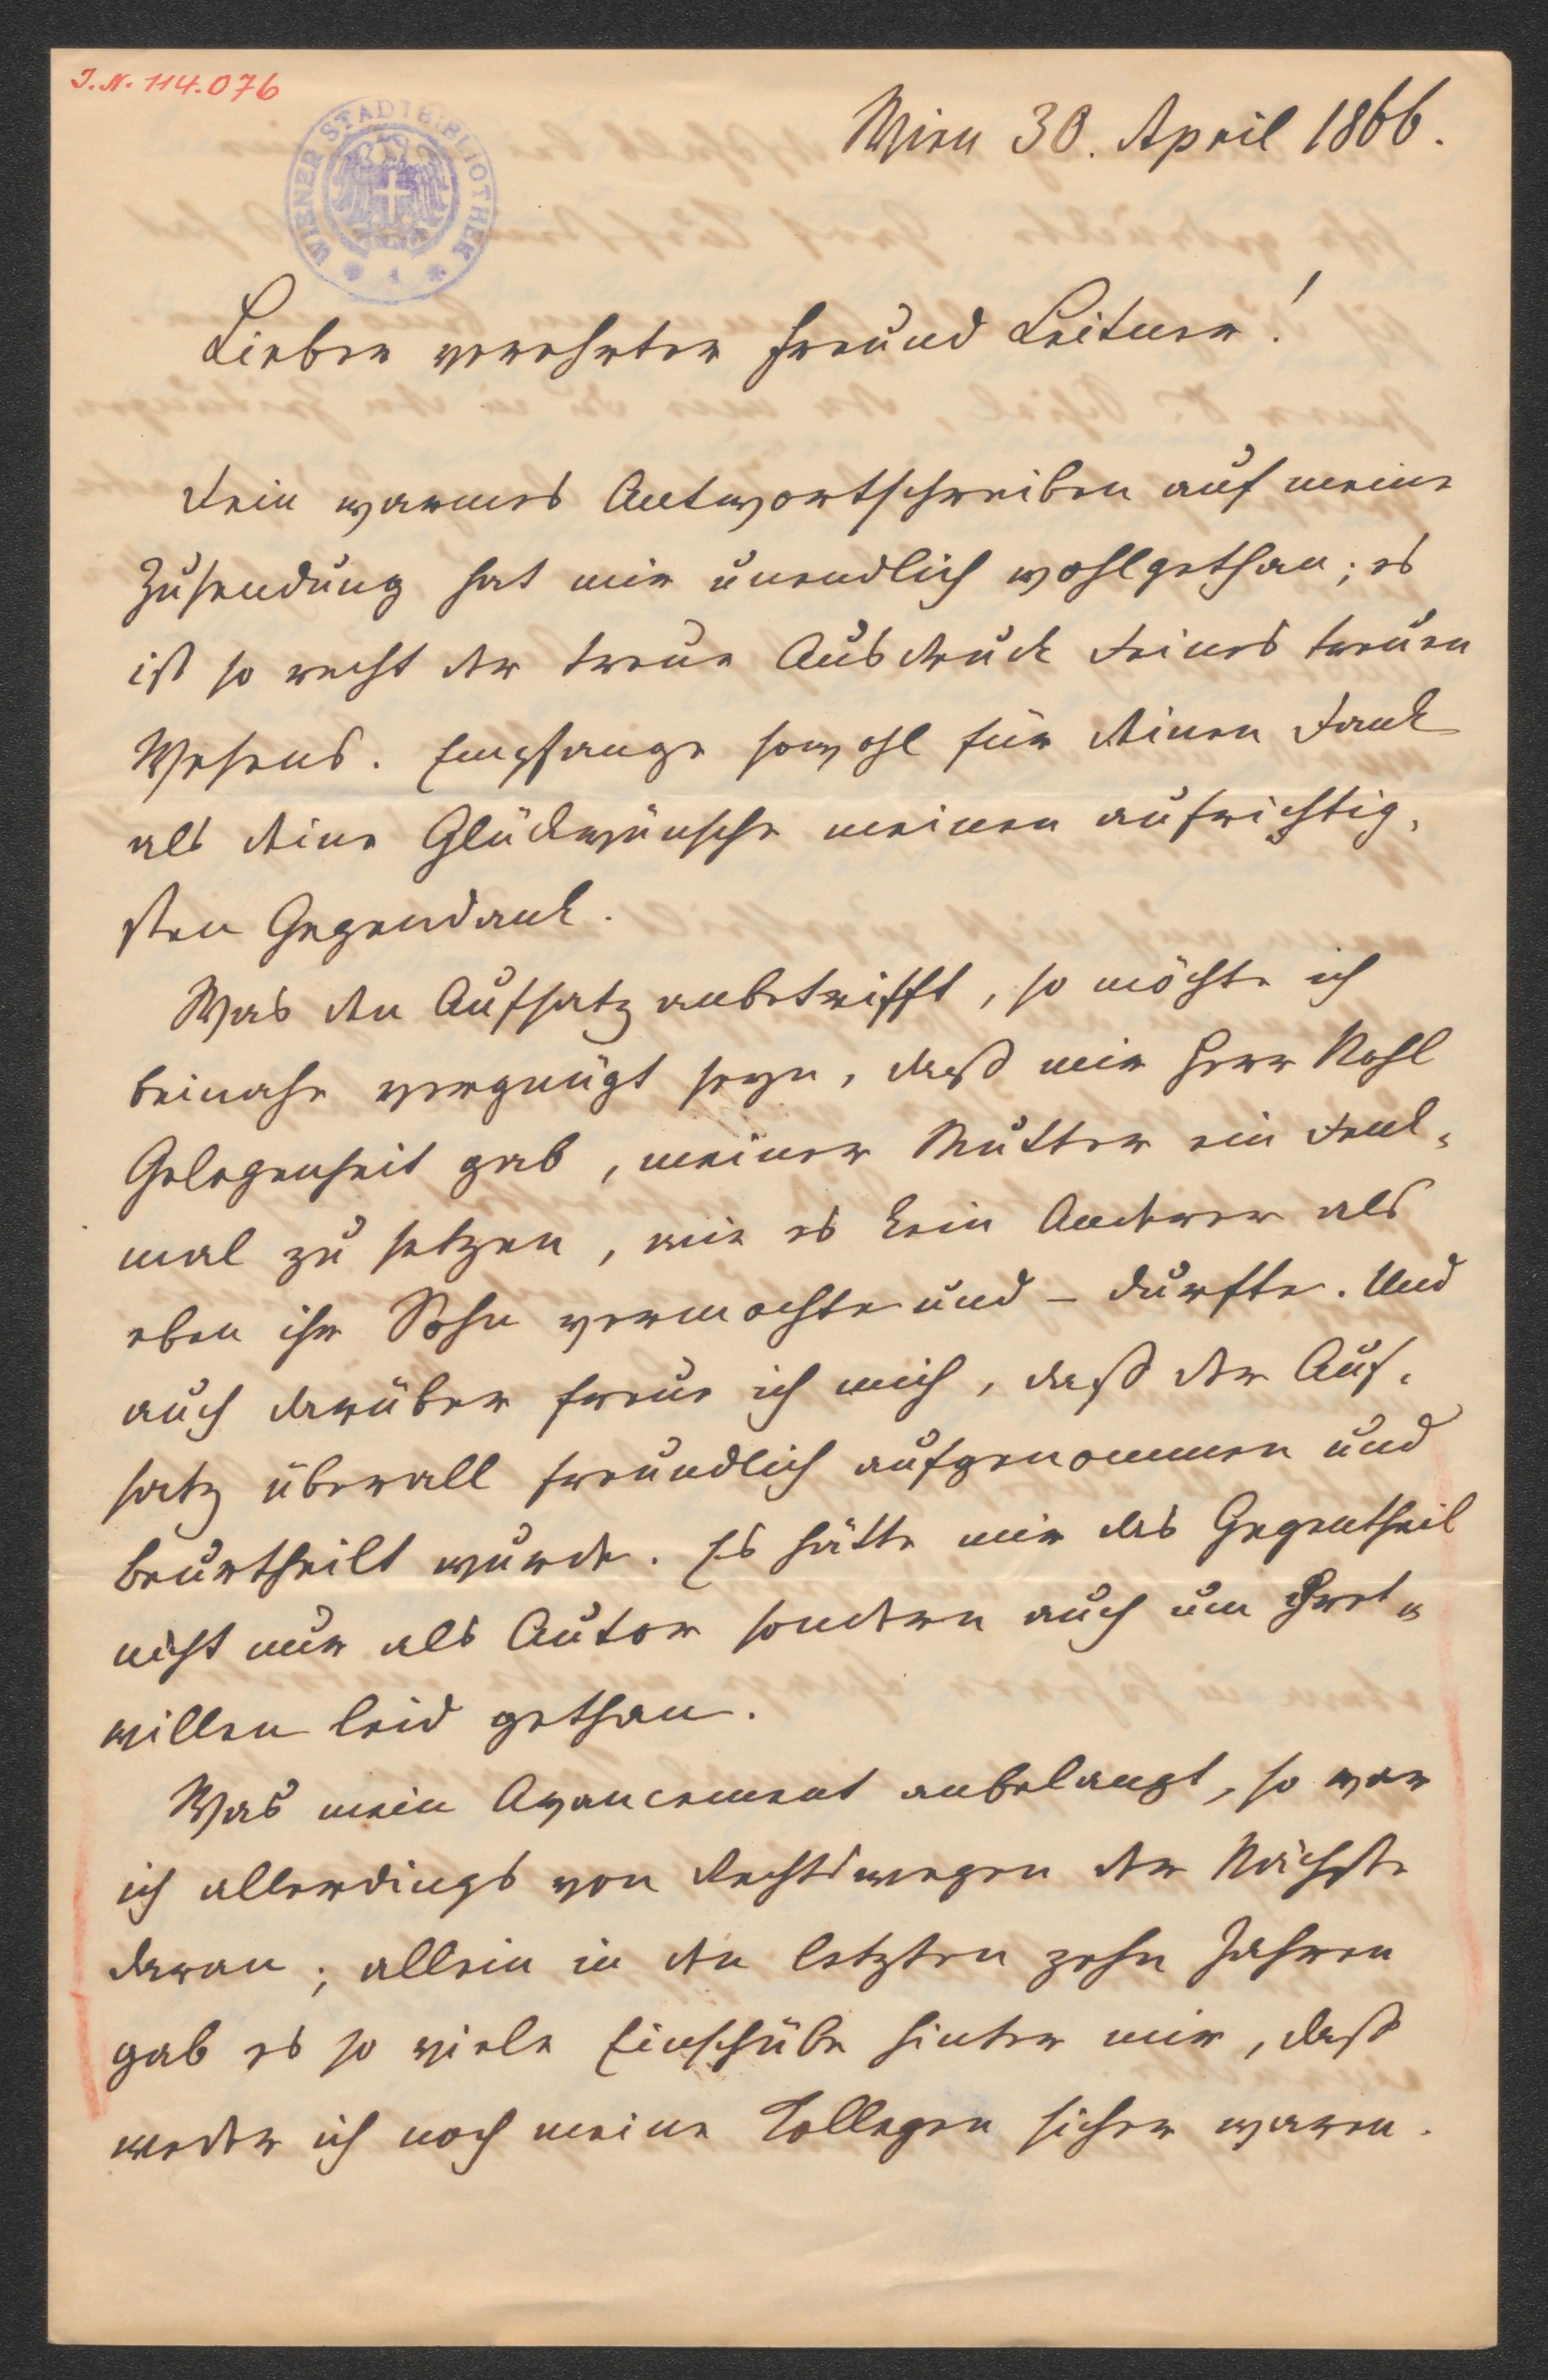 I.N. 114.076
WIENER STADTBIBLIOTHEK
Wien 30. April 1866.
Lieber verehrter Freund Leitner!
Dein warmes Antwortschreiben auf meine
Zusendung hat mir unendlich wohlgethan; es
ist so recht der treue Ausdruck Deines treuen
Wesens. Empfange sowohl für Deinen Dank
als Deine Glückwünsche meinen aufrichtig,
sten Gegendank.
Was den Aufsatz anbetrifft, so möchte ich
beinahe vergnügt seyn, daß mir Herr Nohl
Gelegenheit gab, meiner Mutter ein Denk=
mal zu setzen, wie es kein Anderer als
eben ihr Sohn vermochte und – durfte. Und
auch darüber freue ich mich, daß der Auf=
satz überall freundlich aufgenommen und
beurtheilt wurde. Es hätte mir das Gegentheil
nicht nur als Autor sondern auch um Ihret=
willen leid gethan.
Was mein Avancement anbelangt, so war
ich allerdings von Rechtswegen der Nächste
daran; allein in den letzten zehn Jahren
gab es so viele Einschübe hinter mir, daß
weder ich noch meine Collegen sicher waren.